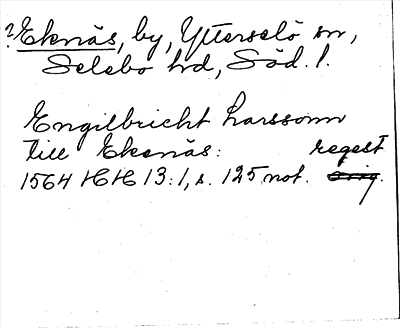 ? Ekenäs, by, Ytterselö sn,
Selebo hd, Söd. l.
Engilbricht Larssonn
till Ekenäs: regest
1564 HH 13:1, s. 125, not. orig.